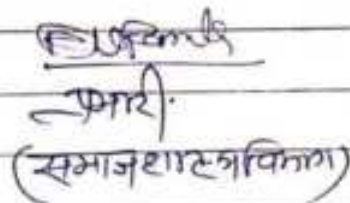 प्रभारी.
(समाजशास्त्र विभाग)